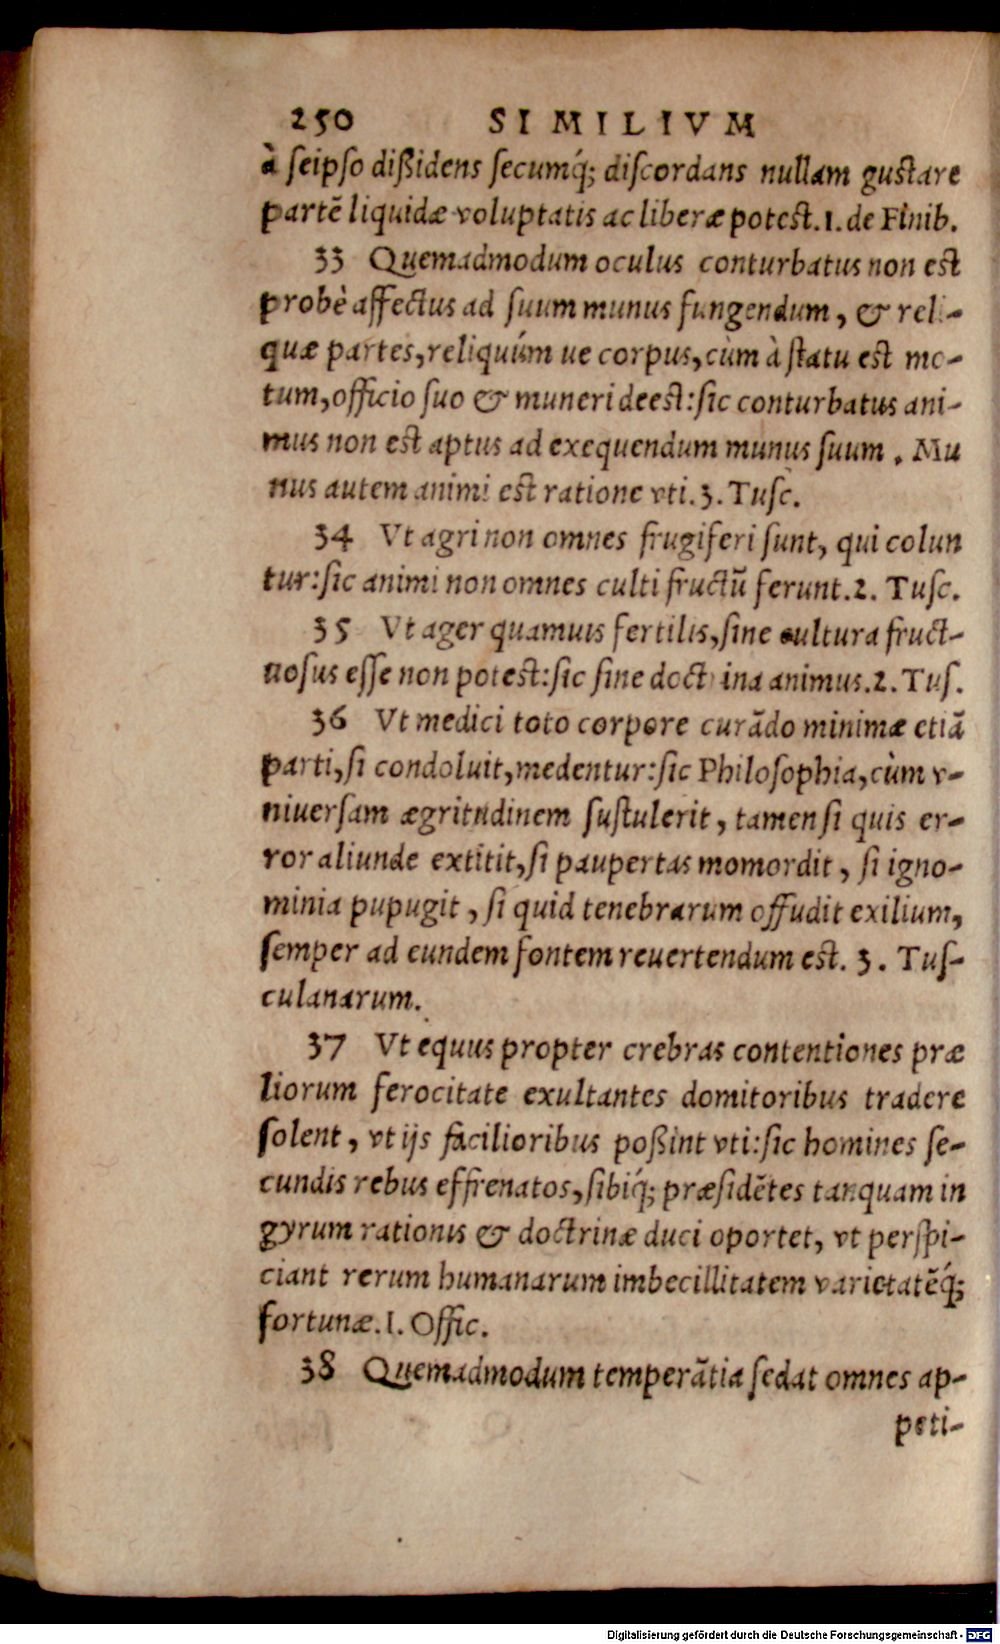 250 SIMILIVM
à ſeipſo dißidens ſecumq́; diſcordans nullam guſtare
partē liquidæ voluptatis ac liberæ poteſt. 1. de Finib.
33 Quemadmodum oculus conturbatus non eſt
probè affectus ad ſuum munus fungendum, & reli-
quæ partes, reliquúm ue corpus, cùm à ſtatu eſt mo-
tum, officio ſuo & muneri deeſt: ſic conturbatus ani-
mus non eſt aptus ad exequendum munus ſuum. Mu
nus autem animi eſt ratione vti. 3. Tuſc.
34 Vt agri non omnes frugiferi ſunt, qui colun
tur: ſic animi non omnes culti fructū ferunt. 2. Tuſc.
35 Vt ager quamuis fertilis, ſine cultura fruct-
uoſus eſſe non poteſt: ſic ſine doctrina animus. 2. Tuſ.
36 Vt medici toto corpore curādo minimæ etiā
parti, ſi condoluit, medentur: ſic Philoſophia, cùm v-
niuerſam ægritudinem ſuſtulerit, tamen ſi quis er-
ror aliunde extitit, ſi paupertas momordit, ſi igno-
minia pupugit, ſi quid tenebrarum offudit exilium,
ſemper ad eundem fontem reuertendum eſt. 3. Tuſ-
culanarum.
37 Vt equus propter crebras contentiones præ
liorum ferocitate exultantes domitoribus tradere
ſolent, vt ijs facilioribus poßint vti: ſic homines ſe-
cundis rebus effrenatos, ſibiq́; præſidētes tanquam in
gyrum rationis & doctrinæ duci oportet, vt perſpi-
ciant rerum humanarum imbecillitatem varietatēq́;
fortunæ. 1. Offic.
38 Quemadmodum temperātia ſedat omnes ap-
peti-
Digitalisierung gefördert durch die Deutsche Forschungsgemeinschaft - DFG